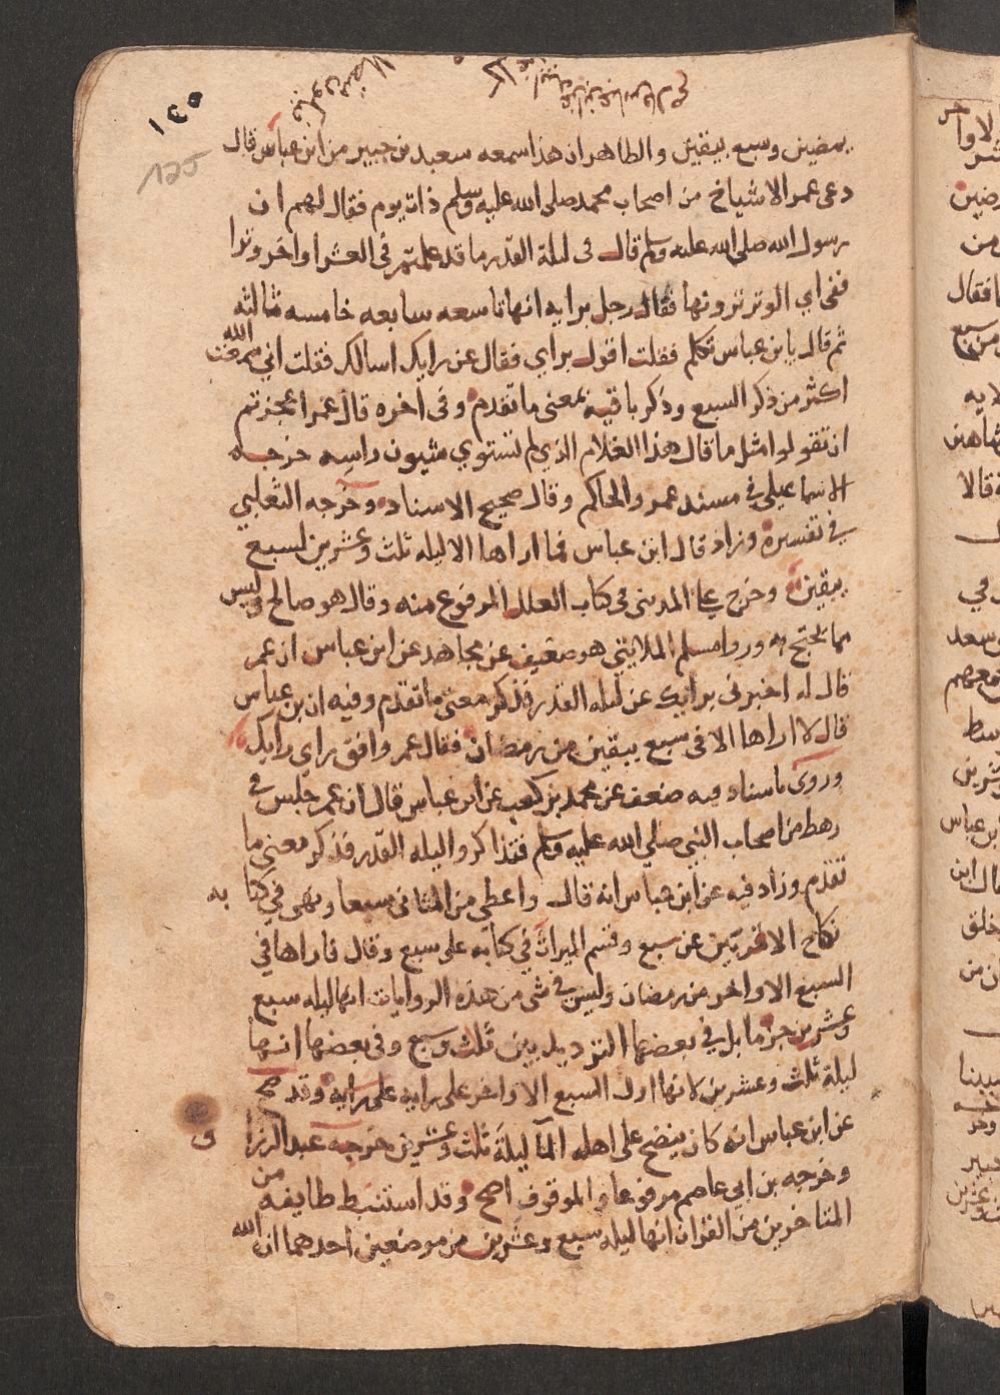 ١٣٥
125
يمضين وسبع يبقين والظاهر ان هذا سمعه سعيد بن جبير من ابن عباس قال
دعى عمر الاشياخ من اصحاب محمد صلى الله عليه وسلم ذات يوم فقال لهم ان
رسول الله صلى الله عليه وسلم قال فى ليلة القدر ما قد علمتم في العشر اواخر وترا
ففى اي الوتر ترونها فقال رجل برايه انها تاسعه سابعه خامسه ثالثه
ثم قال يا بن عباس تكلم فقلت اقول براي فقال عن رايك اسالك فقلت اني سمعت الله
اكثر من ذكر السبع وذكر باقيه بمعنى ما تقدم وفى اخره قال عمر اعجزتم
ان تقولوا مثل ما قال هذا الغلام الذي لم تستوي شيون راسه خرجه
الاسماعيلي في مسند عمر والحاكم وقال صحيح الاسناد وخرجه الثعلبي
في تفسيره وزاد قال ابن عباس فما اراها الا ليله ثلث وعشرين لسبع
يبقين وخرج علي المديني في كتاب العلل المرفوع منه وقال هو صالح وليس
مما يحتج به وروا مسلم الملايئي هو ضعيف عن مجاهد عن ابن عباس ان عمر
قال له اخبرنى برايك عن ليله القدر فذكر معنى ما تقدم وفيه ان بن عباس
قال لا اراها الا فى سبع يبقين من رمضان فقال عمر وافق راي رايك
وروى باسناد فيه ضعف عن محمد بن كعب عن ابن عباس قال ان عمر جلس في
رهط من اصحاب النبي صلي الله عليه وسلم فتذاكروا ليله القدر فذكر معنى ما
تقدم وزاد فيه عن ابن عباس انه قال واعطي من المثانى سبعا ونهى في كتا به
نكاح الاقربين عن سبع وقسم الميراث في كتابه على سبع وقال فاراها في
السبع الاواخر من رمضان وليس في شي من هذه الروايات انها ليله سبع
وعشرين جزما بل في بعضها الترديد بين ثلث وسبع وفى بعضها انها
ليلة ثلث وعشرين لانها اول السبع الاواخر على رايه على رايه وقد صح
عن ابن عباس انه كان ينضح على اهله الما ليلة ثلث وعشرين خرجه عبد الرزا ق
وخرجه بن ابي عاصم مرفوعا والموقوف اصح وقد استنبط طايفه من
المتاخرين من القران انها ليله سبع وعشرين من موضعين احدهما ان الله